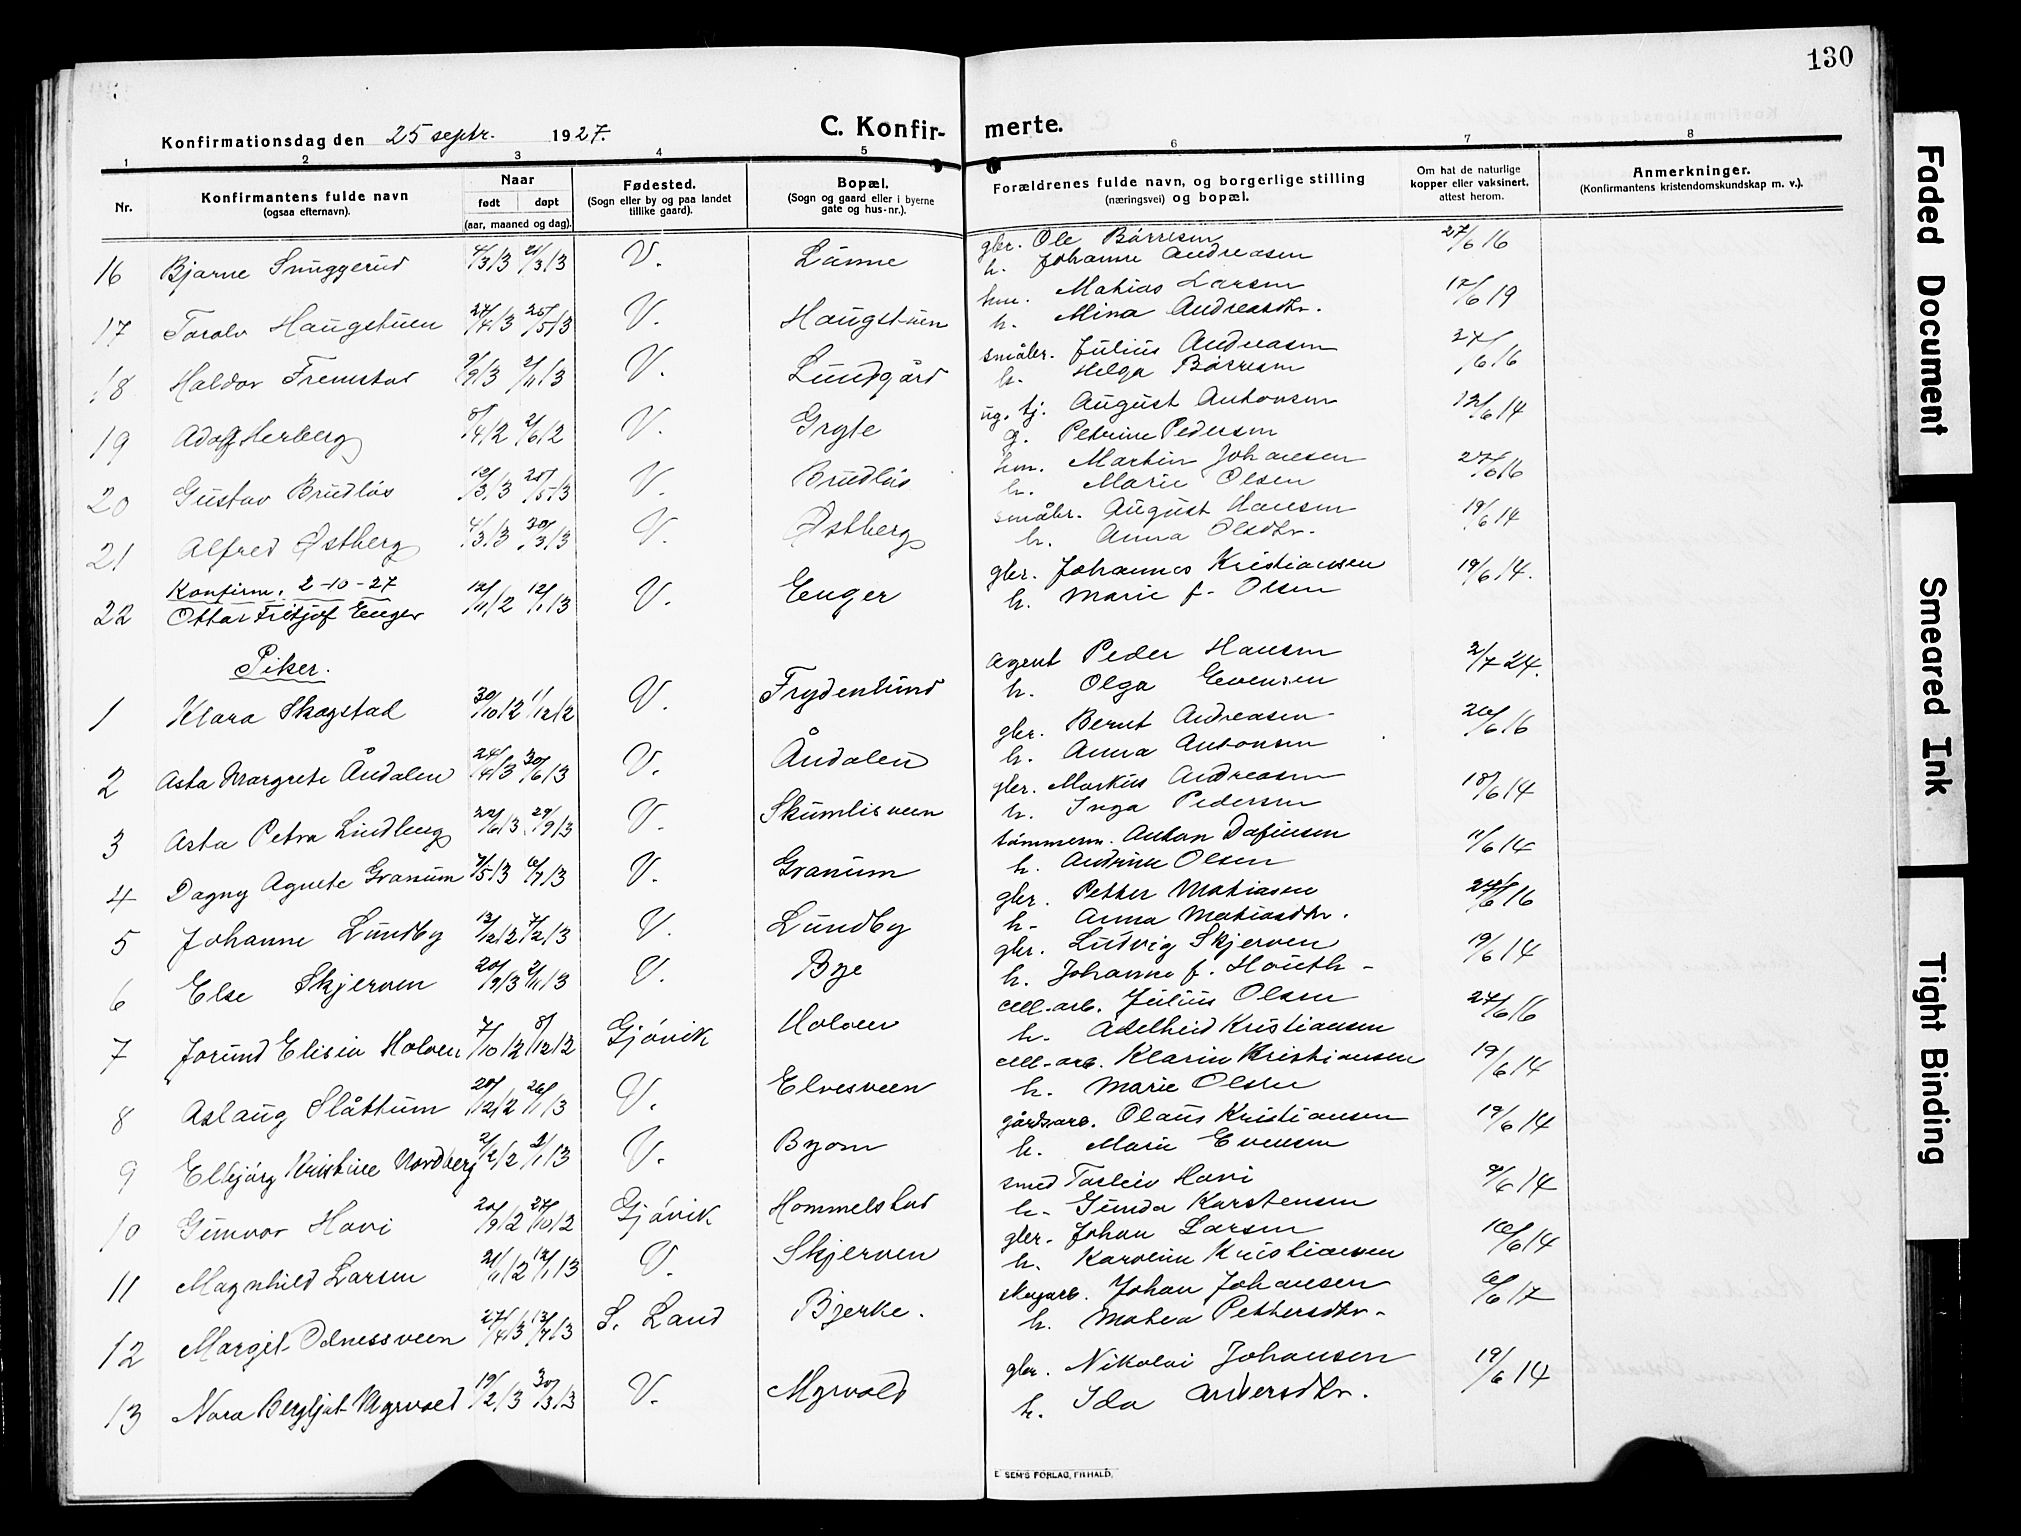 130
Konfirmationsdag den 25 septr. 1927. C. Konfir- merte.
1 2 3 4 5 6 7 8
Nr. Konfirmantens fulde navn (ogsaa efternavn). Naar født døpt (aar, maaned og dag). Fødested. (Sogn eller by og paa landet tillike gaard). Bopæl. (Sogn og gaard eller i byerne gate og hus-nr.). Forældrenes fulde navn, og borgerlige stilling (næringsvei) og bopæl. Om hat de naturlige kopper eller vaksinert, attest herom. Anmerkninger. (Konfirmantens kristendomskundskap m. v.).
16 Bjarne Snuggerud 4/3 13 21/3 13 V. Lünne gbr. Ole Børresen 27/6 16
h. Johanne Andreasen
17 Toralv Haugstuen 27/4 13 25/5 13 V. Haugstuen hm. Mathias Larsen 12/6 19
h. Mina Andreasdtr.
18 Haldor Fremstad 9/9 13 2/11 13 V. Lundgård småbr. Julius Andreasen 27/6 16
h. Helga Børresen
19 Adolf Herberg 8/4 12 2/6 12 V. Gryte ug. tj. August Antonsen 12/6 14
g. Petrine Pedersen
20 Gustav Brudløs 12/3 13 25/5 13 V. Brudløs hm. Martin Johansen 27/6 16
h. Marie Olsen
21 Alfred Østberg 4/3 13 30/3 13 V. Østberg småbr. August Hansen 19/6 14
h. Anna Olsdtr.
Konfirm. 2-10-27
22 Ottar Fritjof Enger 12/11 12 12/1 13 V. Enger gbr. Johannes Kristiansen 19/6 14.
h. Marie f. Olsen
Piker.
1 Klara Skogstad 30/10 12 1/12 12 V. Frydenlund Agent Peder Hansen 2/7 24.
h. Olga Evensen
2 Asta Margrete Åndalen 24/4 13 30/6 13 V. Åndalen gbr. Bernt Andreasen 26/6 16
h. Anna Antonsen
3 Asta Petra Lindberg 22/6 13 29/9 13 V. Skumlisveen gbr. Markus Andreasen 18/6 14
h. Inga Pedersen
4 Dagny Agnete Granum 7/5 13 6/7 13 V. Granum tømmerm. Anton Dafinsen 11/6 14
h. Andrine Olsen
5 Johanne Lundby 13/12 12 7/2 13 V. Lundby gbr. Petter Matiasen 27/6 16
h. Anna Matiasdtr.
6 Else Skjerven 20/9 13 2/11 13 V. Bye gbr. Ludvig Skjerven 19/6 14
h. Johanne f. Houth
7 Jorund Elisiv Holven 7/10 12 8/12 12 Gjøvik Holven cell-arb. Julius Olsen 27/6 16
h. Adelheid Kristiansen
8 Aslaug Slåttum 20/12 12 26/1 13 V. Elvesveen cell-arb. Klarin Kristiansen 19/6 14
h. Marie Olsen
9 Elbjørg Kristine Nordberg 2/12 12 2/1 13 V. Byom gårdsarb. Olaus Kristiansen 19/6 14
h. Marie Evensen
10 Gunvor Hovi 20/9 12 27/10 12 Gjøvik Hommelstad smed Torleiv Hovi 9/6 14
h. Gunda Karstensen
11 Magnhild Larsen 21/11 12 12/1 13 V. Skjerven gbr. Johan Larsen 10/6 14
h. Karoline Kristiansen
12 Margit Odnessveen 27/4 13 13/7 13 S. Land Bjerke. skogarb. Johan Johansen 6/6 17
h. Matea Pettersdtr.
13 Nora Bergljot Myrvold 19/2 13 30/3 13 V. Myrvold gbr. Nikolai Johansen 19/6 14
h. Ida Andersdtr.
E. SEM'S FORLAG, FR.HALD.
Faded Document
Smeared Ink
Tight Binding